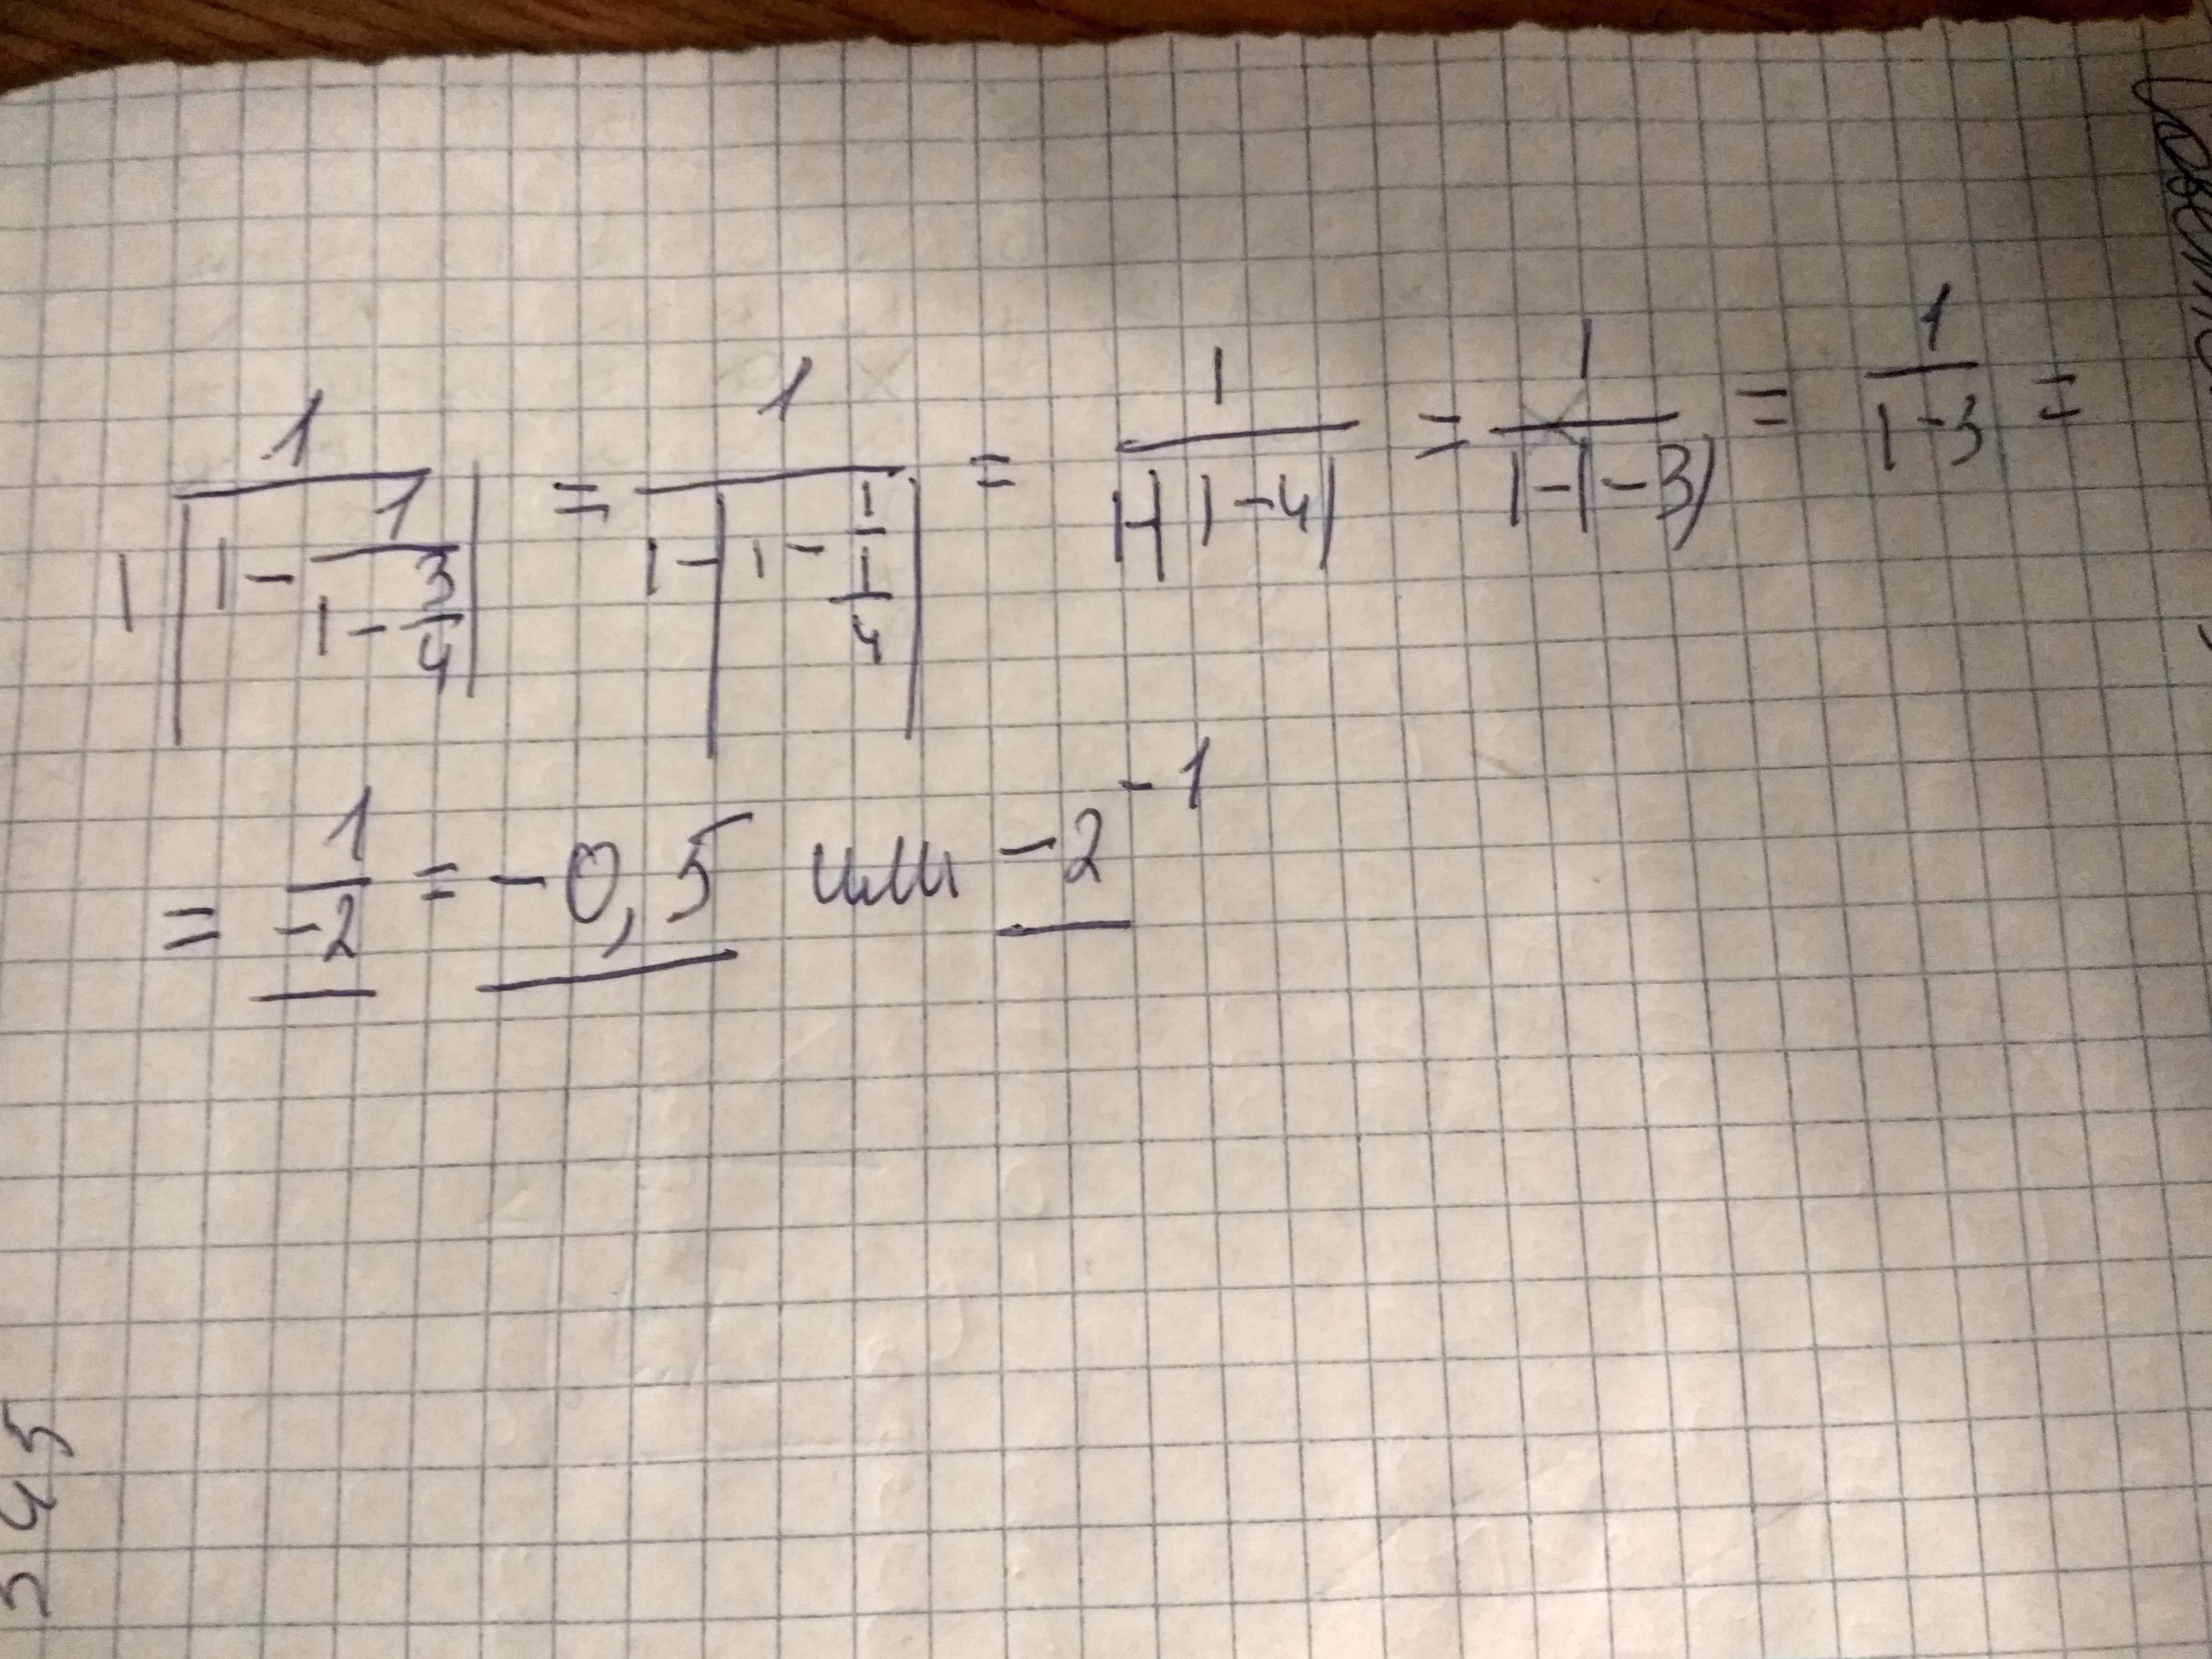 1/(1|1-1/(1-3/4)|) = 1/(1-|1-1/(1/4)|) = 1/(1-|1-4|) = 1/(1-|-3|) = 1/(1-3) =
= 1/-2 = -0,5 или -2^-1